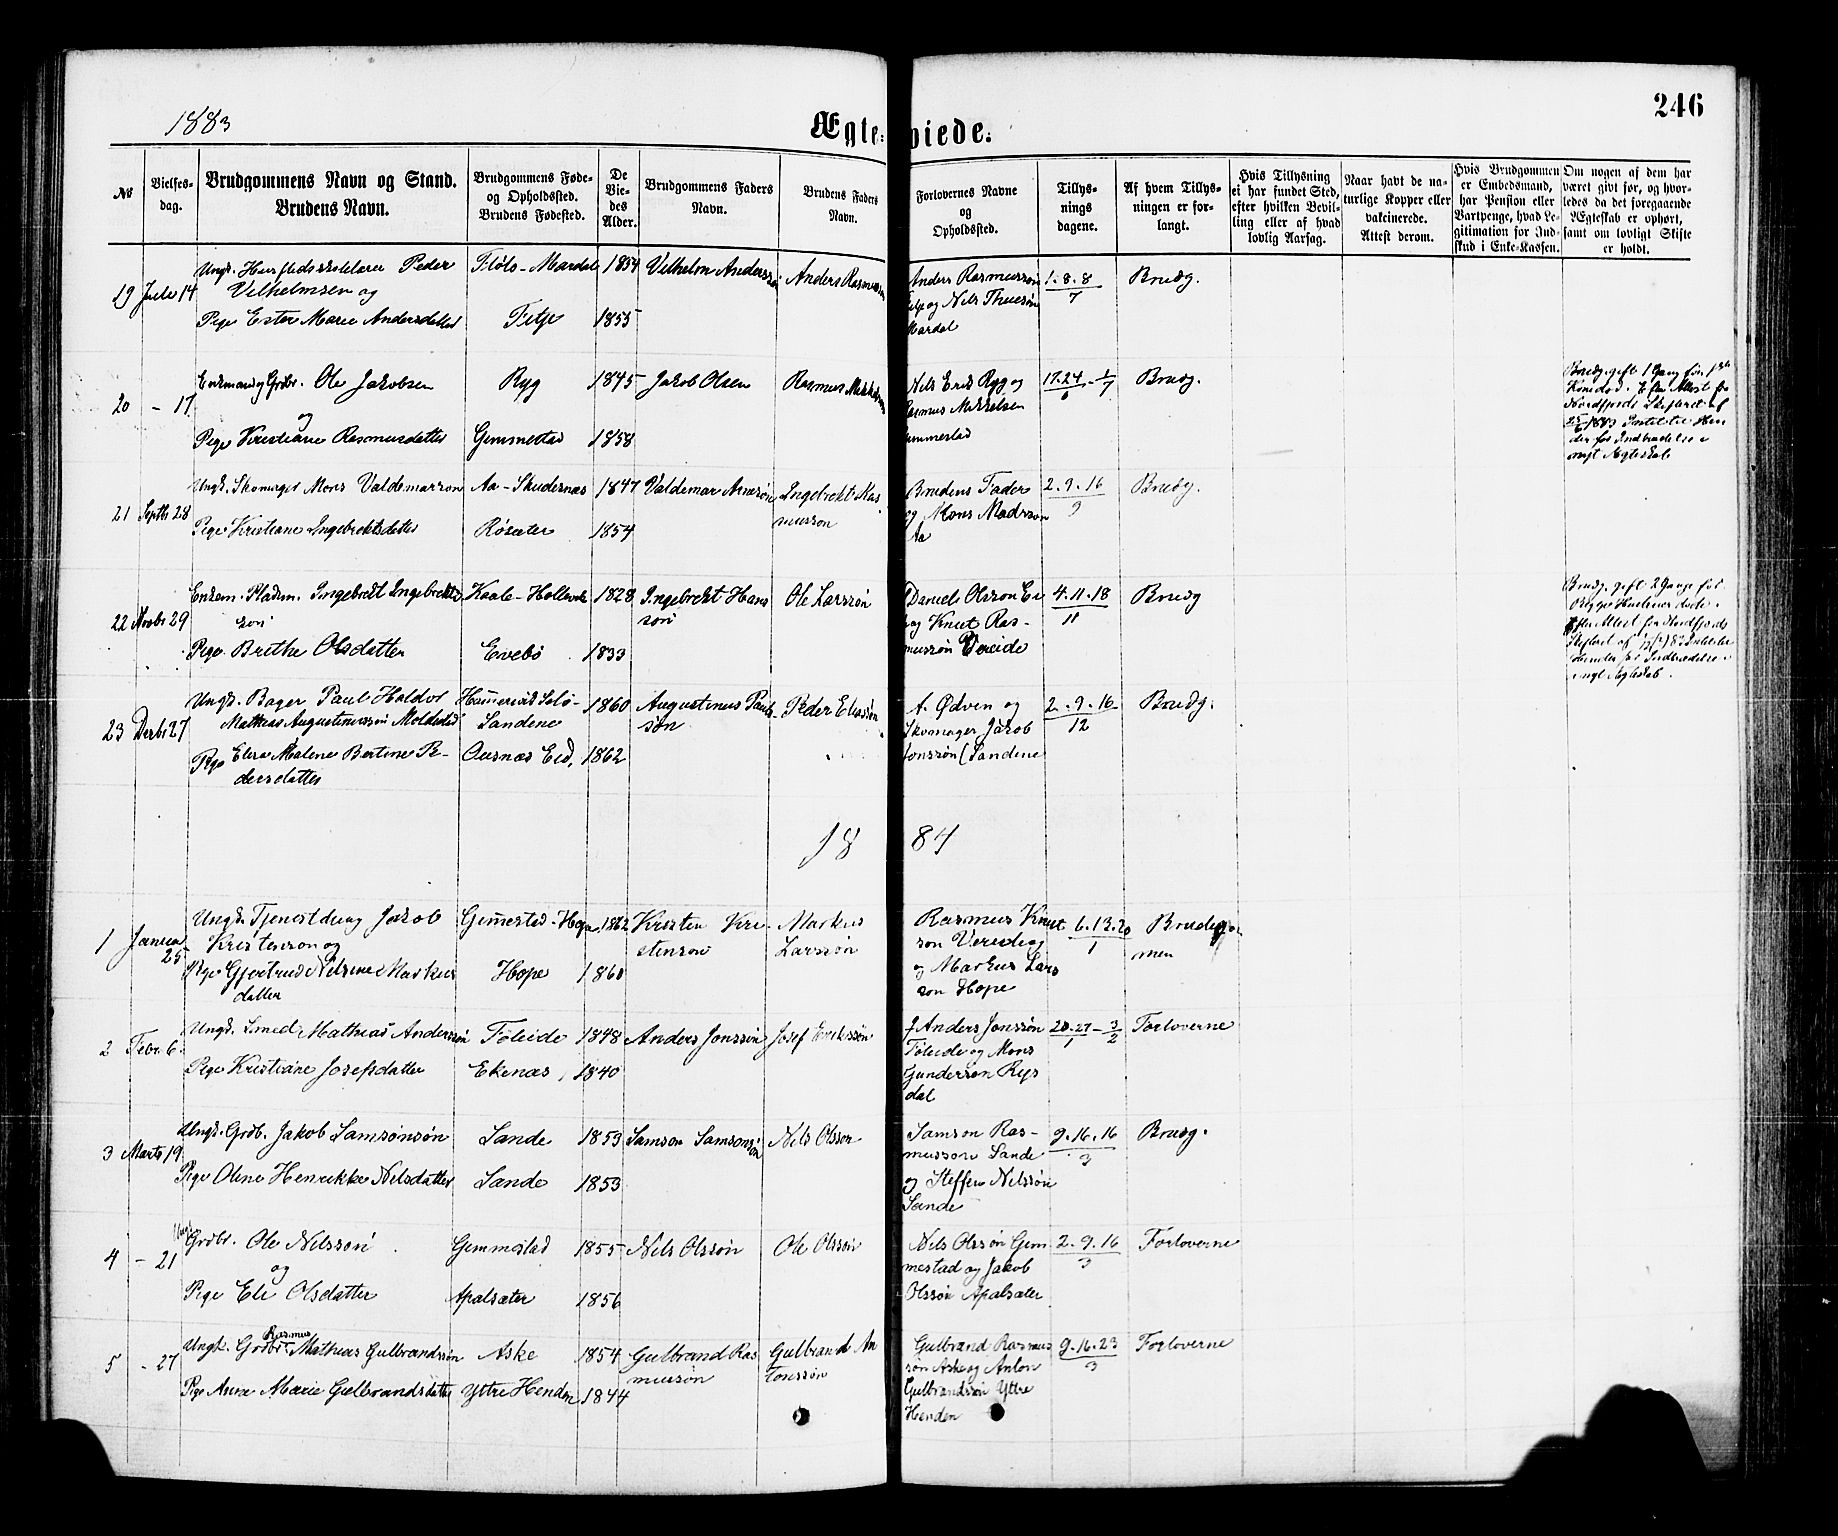 1883
Ægteviede.
246
No
Vielses-
dag.
Brudgommens Navn og Stand.
Brudens Navn.
Brudgommens Føde-
og Opholdssted.
Brudens Fødested.
De
Vie-
des
Alder.
Brudgommens Faders
Navn.
Brudens Faders
Navn.
Forlovernes Navne
og
Opholdssted.
Tillys-
nings
dagene.
Af hvem Tillys-
ningen er for-
langt.
Hvis Tillysning
ei har fundet Sted,
efter hvilken Bevil-
ling eller af hvad
lovlig Aarsag.
Naar havt de na-
turlige Kopper eller
vakcinerede.
Attest derom.
Hvis Brudgommen
er Embedsmand,
har Pension eller
Vartpenge, hvad Le-
gitimation for Ind-
skud i Enke-Kassen.
Om nogen af dem har
været givt før, og hvor-
ledes da det foregaaende
Ægteskab er ophørt,
samt om lovligt Skifte
er holdt.
19 Juli 14
Ungk. Peder
Velhelmsen og
Pige Ester Marie Andersdatter
Fløls-Mardal
Fetje
1854
1855
Vilhelm Anderssøn
Anders Rasmussen
Anders Rasmussøn
og Nils Thuesøn
Mardal
1.8.8
7
Brudg.
20 - 17
Enkemand og Grdbr. Ole Jakobsen
og
Pige Kristiane Rasmusdatter
Ryg
Gemmestad
1845
1858
Jakob Olsen
Rasmus Mikkelsen
Nils Ryg og
Rasmus Mikkelsen
Gemmestad
17.24 - 1
6 7
Brudg.
Brudg. gift 1 Gang før.
Nordfjords Skifteret af
1883
nyt Ægteskab
21 Septbr 28
Ungk. Skomager Mons Valdemarson
Pige Kristiane Ingebrektsdatter
Aa - Skudesnæs
Røsæter
1847
1854
Valdemar
Ingebrekt Ras
musson
Brudens Fader
og Mons Madsson
Aa
2.9.16
9
Brudg.
22 Novbr 29
Enkem. Pladsm. Ingebrekt Ingebrekts
søn
Pige Brithe Olsdatter
Evebø
1828
1833
Ingebrekt Hans
søn
Ole Larssøn
Daniel Olsson
og Knut Ras-
mussøn Vereide
4.11.18
11
Brudg
Brudg. gift 2 Gange før.
nyt Ægteskab.
23 Decbr 27
Ungk. Bager Paul Haldor
Mathias Augustinussøn Moldestad
Pige Elisa Malene Bertine Pe-
dersdatter
Sandene
Eid,
1860
1862
Augustinus Pauls-
søn
Peder Eliassøn
A. Ødven og
Skomager Jakob
Jonssøn (Sandene
2.9.16
12
Brudg.
1884
1 Januar 25
Ungk. Tjenestdreng Jakob
Kristenson og
Pige Gjertrud Nilsine Markus
datter
Gemestad-Hope
Hope
1862
1860
Kristen Kri-
stenson
Markus
Larssøn
Rasmus Knut
son Vereide og
og Markus Lars
son Hope
6.13.20
1
Brudgom
men
2 Febr. 6.
Ungk. Smed Mathias Anderssøn
Pige Kristiane Josefsdatter
Føleide
Ekenæs
1848
1840
Anders Jonssøn
Josef Erikssøn
Anders Jonssøn
Føleide og Mons
Gundersen Rys
dal
20.27 - 3
1 2
Forloverne
3 Marts 19
Ungk. Grdb. Jakob Samsønsøn
Pige Oline Henrikke Nilsdatter
Sande
Sande
1853
1853
Samson Samsonsøn
Nils Olsson
Samson Ras-
musson Sande
og Steffen Nilssøn
Sande
9.16.16
3
Brudg.
4 - 21
Ungk
Grdbr. Ole Nilsson
og
Pige Eli Olsdatter
Gemmestad
Apalsæter
1855
1856
Nils Olssøn
Ole Olssøn
Nils Olssøn Gem
mestad og Jakob
Olssøn Apalsæter
2.9.16
3
Forloverne
5 - 27
Rasmus
Ungk. Grdbr. Mathias Gulbrandssøn
Pige Anne Marie Gulbrandsdatter
Aske
Yttre Henden
1854
1844
Gulbrand Ras
mussøn
Gulbrand An
tonssøn
Gulbrand Rasmus
søn Aske og Anton
Gulbrandsøn Yttre
Henden
9.16.23
3
Forloverne